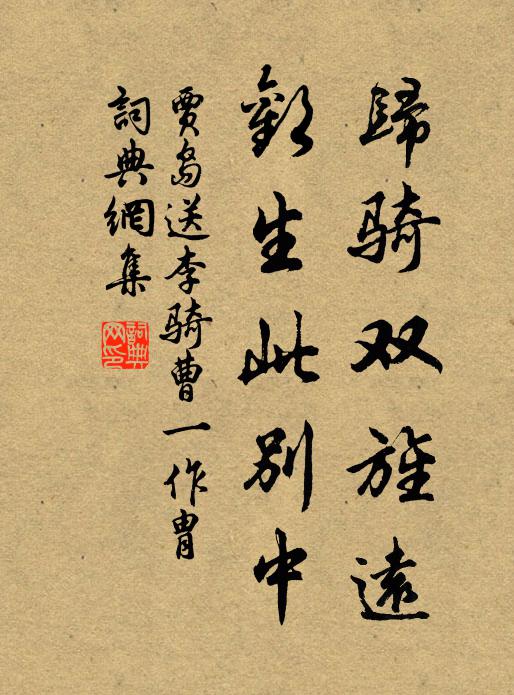 歸骑双旌遠
歡生此別中
賈島送李骑曹一作胄
詞典網集
詞典网印